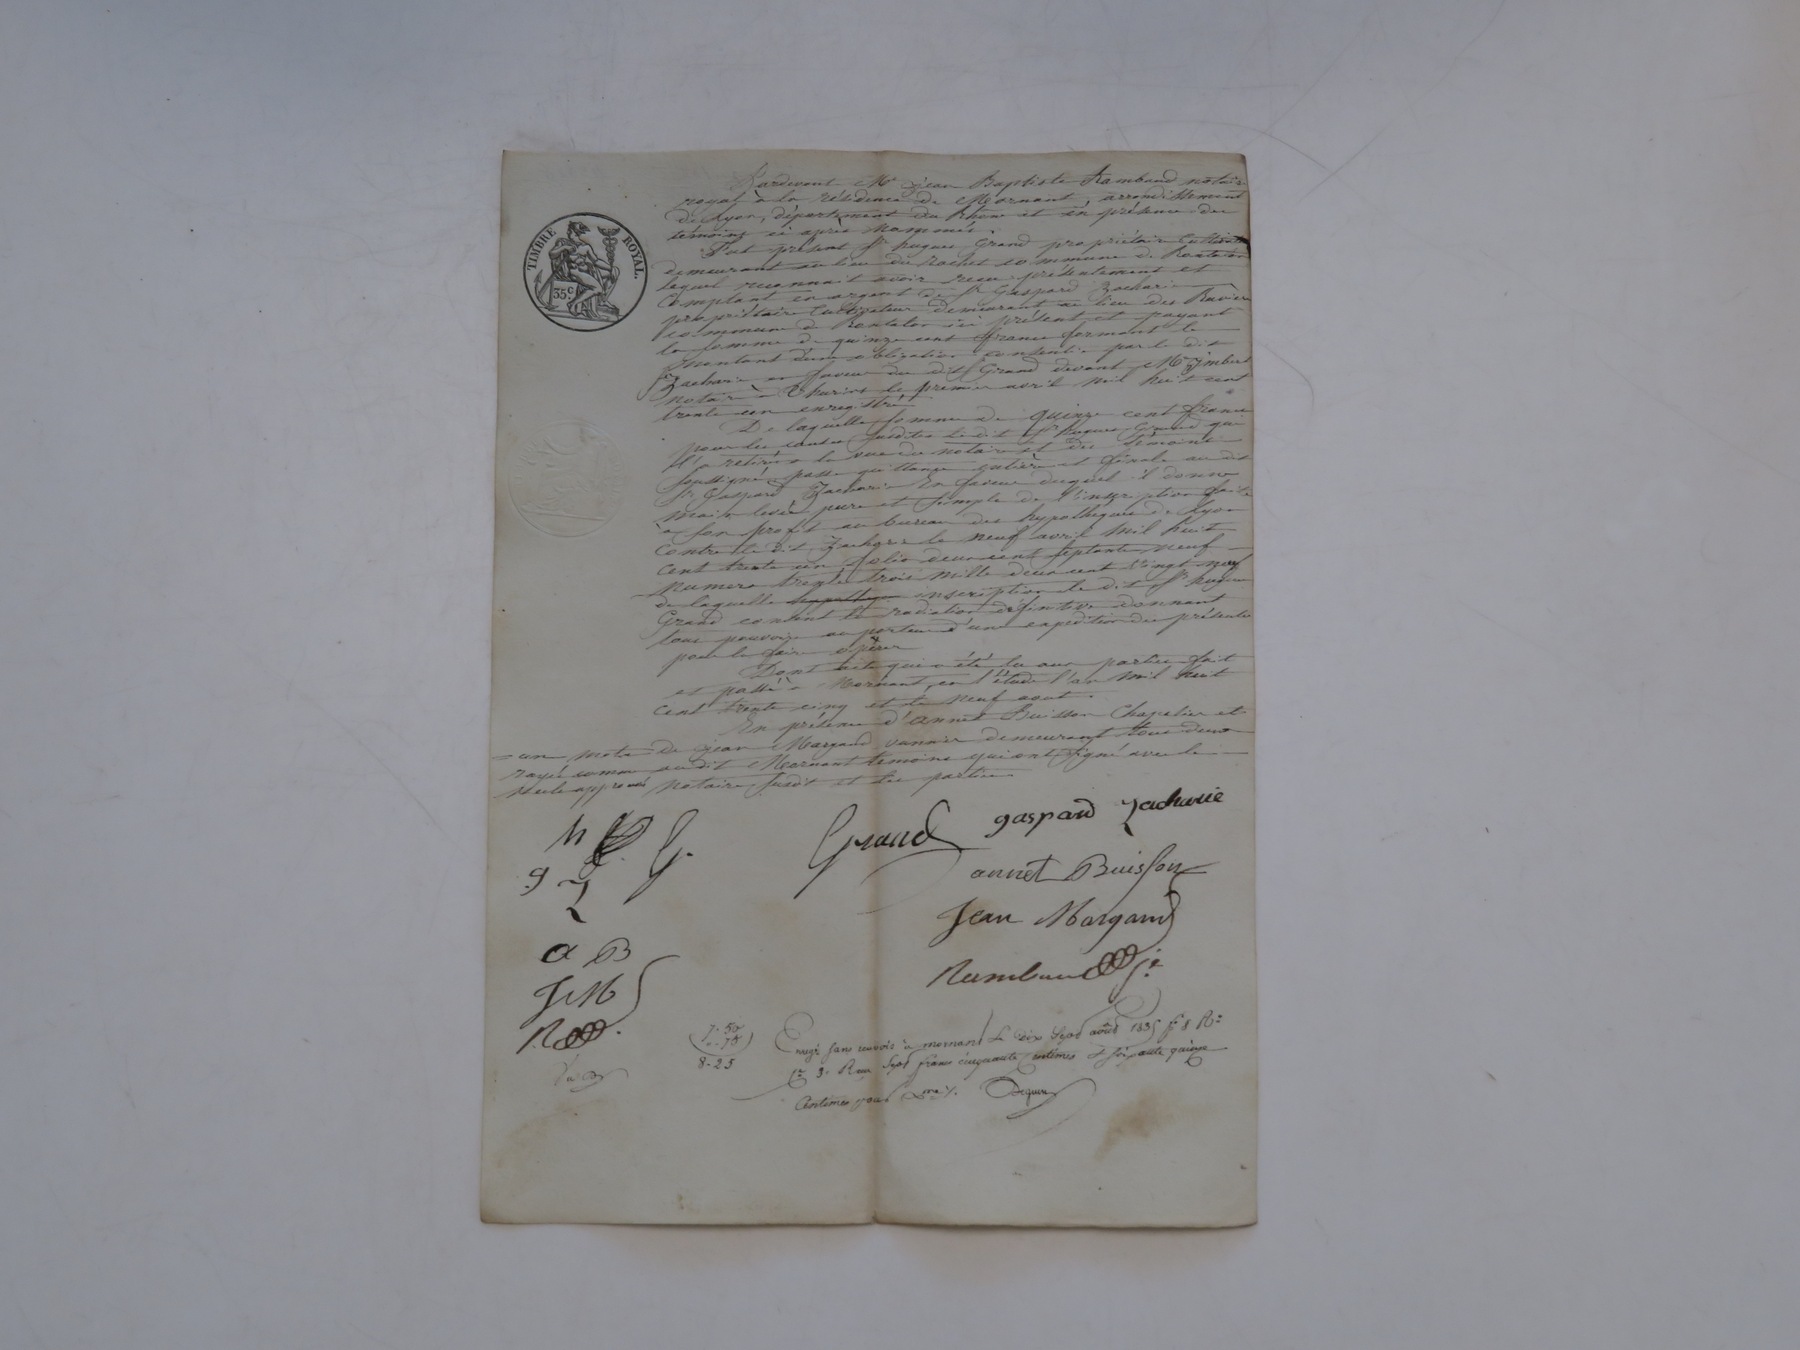 Pardevant Me jean Baptiste Rambaud notaire
royal à la résidence de Mornant, arrondissement
de Lyon, département du Rhône et en présence des
témoins ci après nommés.
Fut présent Sr hugues Grand propriétaire Cultivateur
demeurant au lieu du rochet commune de Rontalon
lequel reconnait avoir reçu présentement et
Comptant en argent de Sr Gaspard Zacharie
propriétaire Cultivateur demeurant au lieu des
commune de Rontalon ici présent et payant
la somme de quinze cent francs formant le
montant d'une obligation consentie par le dit
Sr Zacharie en faveur du dit Sr Grand devant Me Ymbert
notaire à Thurins le premier avril mil huit cent
trente un enregistré
De laquelle somme de quinze cent francs
pour les causes susdites le dit Sr hugues Grand qui
l'a retirée à la vue du notaire et des témoins
soussignés passe quittance entière et finale au dit
Sr Gaspard Zacharie En faveur duquel il donne
main levée pure et simple de l'inscription faite
à son profit au bureau des hypothèques de Lyon
contre le dit Zacharie le neuf avril mil huit
cent trente un folio deux cent septante neuf
numéro trente trois mille deux cent vingt neuf
de laquelle inscription le dit Sr hugues
Grand consent la radiation définitive donnant
tous pouvoirs au porteur d'une expédition des présentes
pour la faire opérer
Dont acte qui a été lu aux parties fait
et passé à Mornant, en l'étude l'an mil huit
cent trente cinq et le neuf aout.
En présence d'annet Buisson Chapelier et
= un mot de jean Margand vannier demeurant tous deux
rayé comme au dit Mornant témoins qui ont signé avec le
nul approuvé notaire susdit et les parties
h G. Grand gaspard Zacharie
g Z annet Buisson
a B Jean Margand
J M Rambaud
R
7-50
"-75
8-25
Enregé sans renvoi à mornant le dix sept août 1835 fo 8 Ro
Ce 3. Reçu sept francs cinquante centimes et soixante quinze
Centimes pour Dme